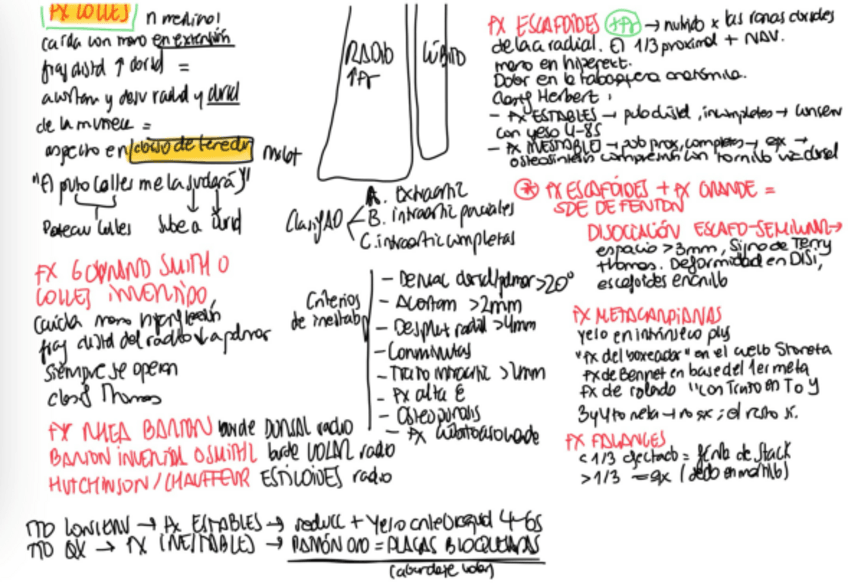 FX COLLES n mediano!
caída con mano en extensión
frag distal ↑ dorsal =
acortam y desv radial y dorsal
de la muñeca =
aspecto en dorso de tenedor
"El puto Colles me la sudará"
Pouteau Colles Sube a dorsal
FX GOYRAND SMITH O
COLLES INVERTIDO
Caída mano hiperflexión
frag distal del radio ↓ a palmar
siempre se operan
clasif Thomas
FX RHEA BARTON borde DORSAL radio
BARTON INVERTIDA O SMITH II borde VOLAR radio
HUTCHINSON / CHAUFFEUR ESTILOIDES radio
RADIO
↑Fr
CÚBITO
Clasif AO
A. Extraartic
B. intraartic parciales
C. intraartic completas
Criterios
de inestab
- Desviac dorsal/palmar > 20°
- Acortam > 2mm
- Desplaz radial > 4mm
- Conminutas
- Trazo intraartic > 2mm
- Fx alta E
- Osteoporosis
- Fx cúbito asociada
TTO CONSERV → Fx ESTABLES → reducc + Yeso antebraquial 4-6s
TTO QX → FX INESTABLES → PATRÓN ORO = PLACAS BLOQUEADAS
(abordaje volar)
FX ESCAFOIDES +Fr → nutrido x las ramas dorsales
de la a radial. El 1/3 proximal + NAV.
mano en hiperext.
Dolor en la tabaquera anatómica.
Clasif Herbert:
- FX ESTABLES → polo distal, incompletas → conserv
con yeso 4-8s
- FX INESTABLES → polo prox, completas → qx →
osteosíntesis compresión con tornillo vía dorsal
* FX ESCAFOIDES + FX GRANDE =
SDE DE FENTON
DISOCIACIÓN ESCAFO-SEMILUNAR →
espacio > 3mm, Signo de Terry
Thomas. Deformidad en DISI,
escafoides en anillo
FX METACARPIANAS
yeso en intrínseco plus
"fx del boxeador" en el cuello 5to meta
fx de Bennet en base del 1er meta
fx de rolando "con trazo en T o Y
3 y 4to meta → no qx; el resto sí.
FX FALANGES
< 1/3 afectado = férula de Stack
> 1/3 = qx (dedo en martillo)